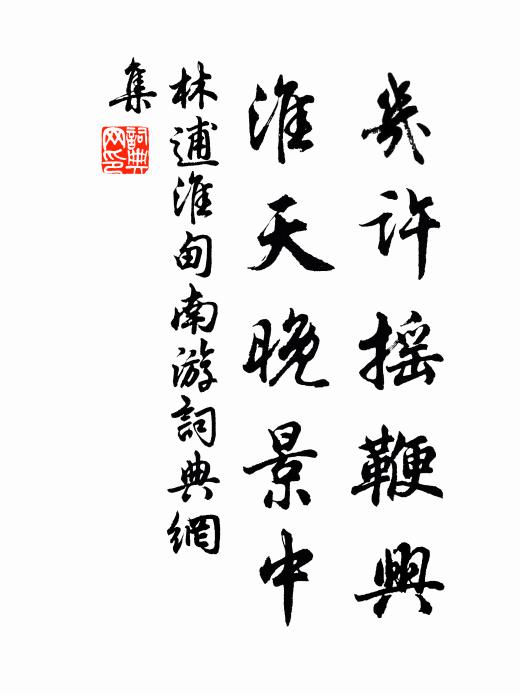 幾許摇鞭興
淮天晚景中
林逋淮甸南游詞典網
集
詞典网印